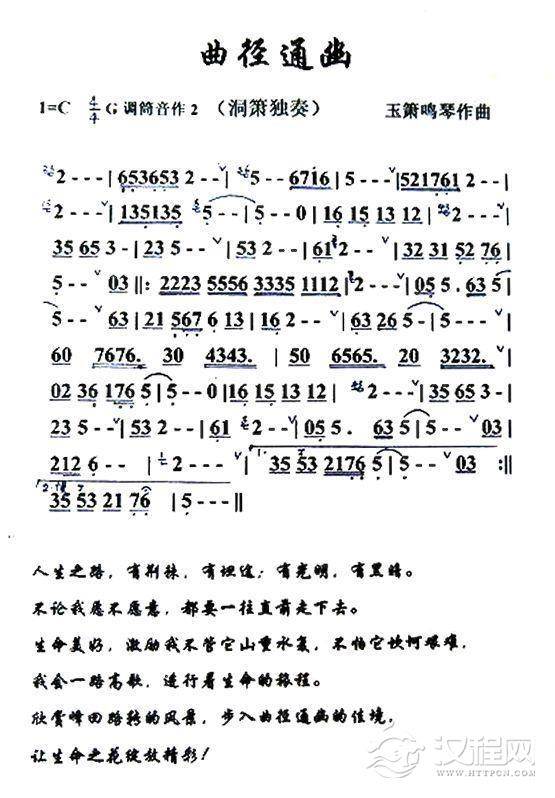 曲径通幽
1=C 4/4 G 调筒音作 2 （洞箫独奏） 玉箫鸣琴作曲
2 - - - | 653653 2 - - | 5 - - 6716 | 5 - - | 521761 2 - - |
2 - - - | 135135 5 - - | 5 - - 0 | 16 15 13 12 | 2 - - |
35 65 3 - | 23 5 - - | 53 2 - - | 61 2 - - | 32 31 52 76 |
5 - - 03 ||: 2223 5556 3335 1112 | 2 - - - | 05 5. 63 5 |
5 - - 63 | 21 567 6 13 | 16 2 - - | 35 3 - - | 63 26 5 - | 5 - - |
60 7676. 30 4343. | 50 6565. 20 3232. |
02 36 176 5 | 5 - - 0 | 16 15 13 12 | 2 - - | 35 65 3 - |
23 5 - - | 53 2 - - | 61 2 - - | 05 5. 63 5 | 5 - - 03 |
212 6 - - | 2 - - - | 1. 35 53 2176 5 | 5 - - 03 :||
35 53 21 76 | 5 - - - ||
人生之路，有荆棘，有坦途；有光明，有黑暗。
不论我愿不愿意，都要一往直前走下去。
生命美好，激励我不管它山重水复，不怕它坎坷艰难，
我会一路高歌，进行着生命的旅程。
欣赏峰回路转的风景，步入曲径通幽的佳境，
让生命之花绽放精彩！
汉程网
WWW.HTTPCN.COM